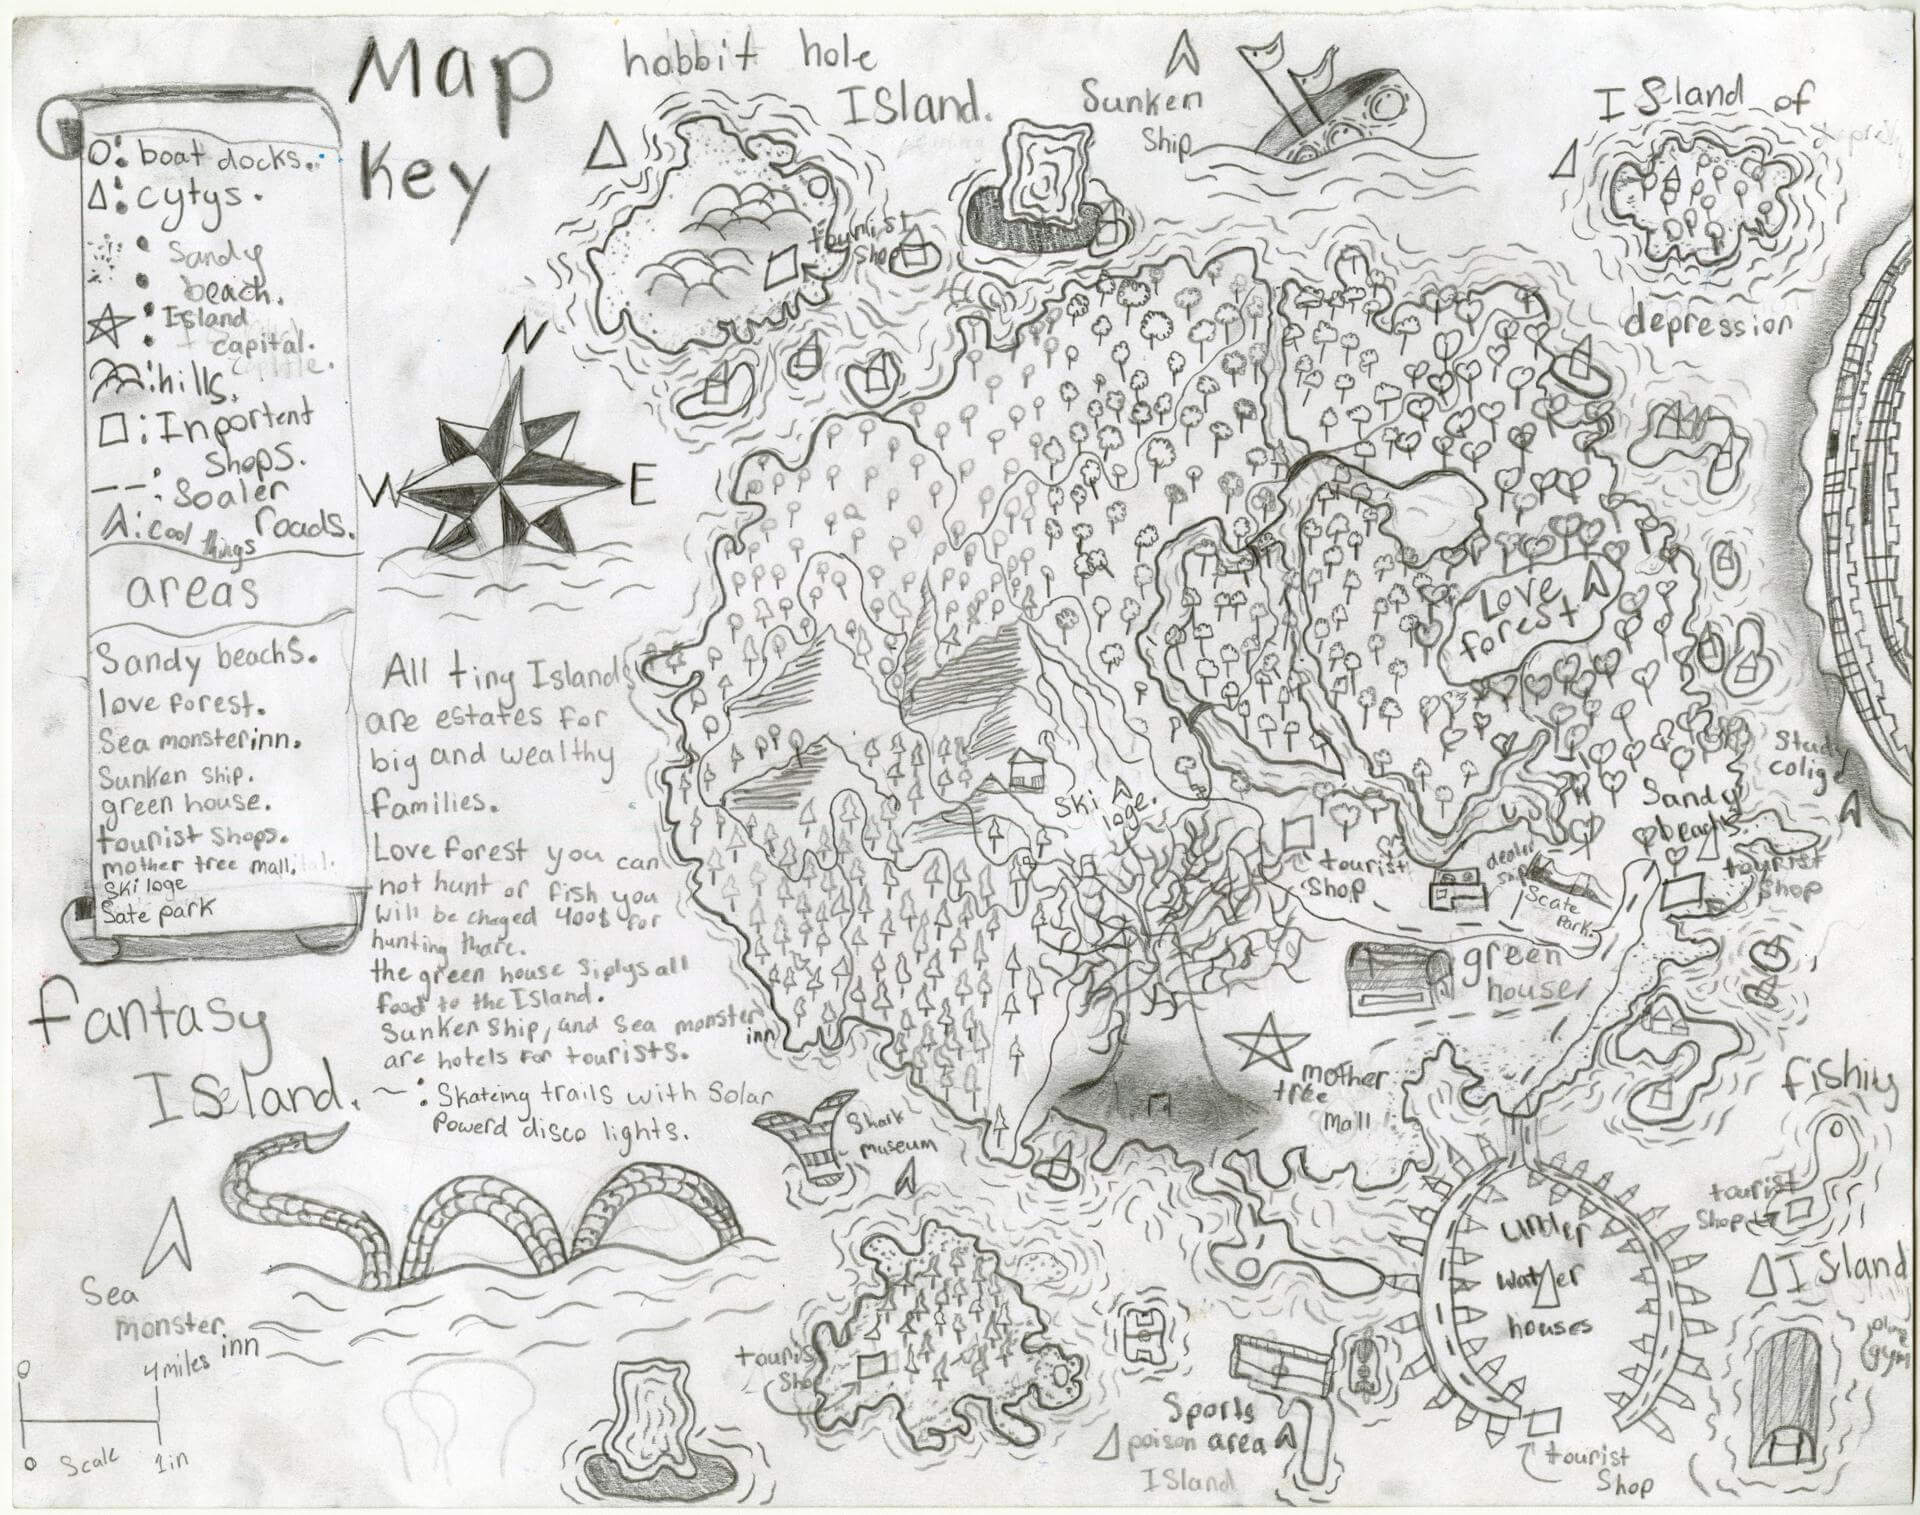 Map
Key
O: boat docks.
Δ: cytys.
: Sandy
beach.
: Island
capital.
: hills.
□: Inportent
Shops.
--: Soaler
roads.
: cool things
areas
Sandy beachs.
love forest.
Sea monster inn.
Sunken Ship.
green house.
tourist Shops.
mother tree mall.
Ski loge
Sate park
N
W
E
All ting Islands
are estates for
big and wealthy
families.
Love forest you can
not hunt or fish you
will be chaged 400$ for
hunting thare.
the green house Siplys all
food to the ISland.
Sunken Ship, and Sea monster inn
are hotels for tourists.
~: Skateing trails with Solar
Powerd disco lights.
fantasy
ISland.
Sea
monster
inn
0
4 miles
0
Scale
1in
hobbit hole
ISland.
tourist
Shop
Sunken
Ship
ISland of
depression
Love
forest
Ski
loge.
tourist
Shop
dealer
Ship
Scate
Park.
Sandy
beachs.
tourist
Shop
Study
colige
green
house
mother
tree
mall
Shark
museum
fishing
ISland
tourist
Shop
under
water
houses
tourist
Shop
gym
tourist
Shop
Sports
area
poison
ISland